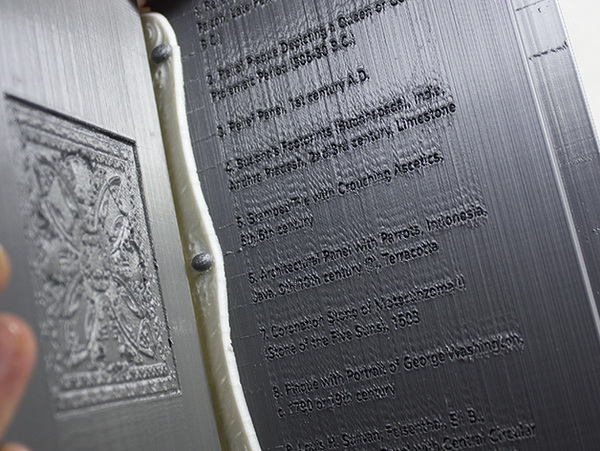 2. Relief Plaque Depicting a Queen or Go
Ptolemaic Period (305-30 B.C.)
3. Relief Panel, 1st century A.D.
4. Buddha's Footprints (Buddhapada), India,
Andhra Pradesh, 2nd/3rd century, Limestone
5. Stamped Tile with Crouching Ascetics,
5th/6th century
6. Architectural Panel with Parrots, Indonesia,
Java, 9th/10th century, Terracotta
7. Coronation Stone of Motecuhzoma II
(Stone of the Five Suns), 1503
8. Plaque with Portrait of George Washington,
c. 1790 or 19th century
9. Louis H. Sullivan, Felsenthal, E. B.,
with Central Circular